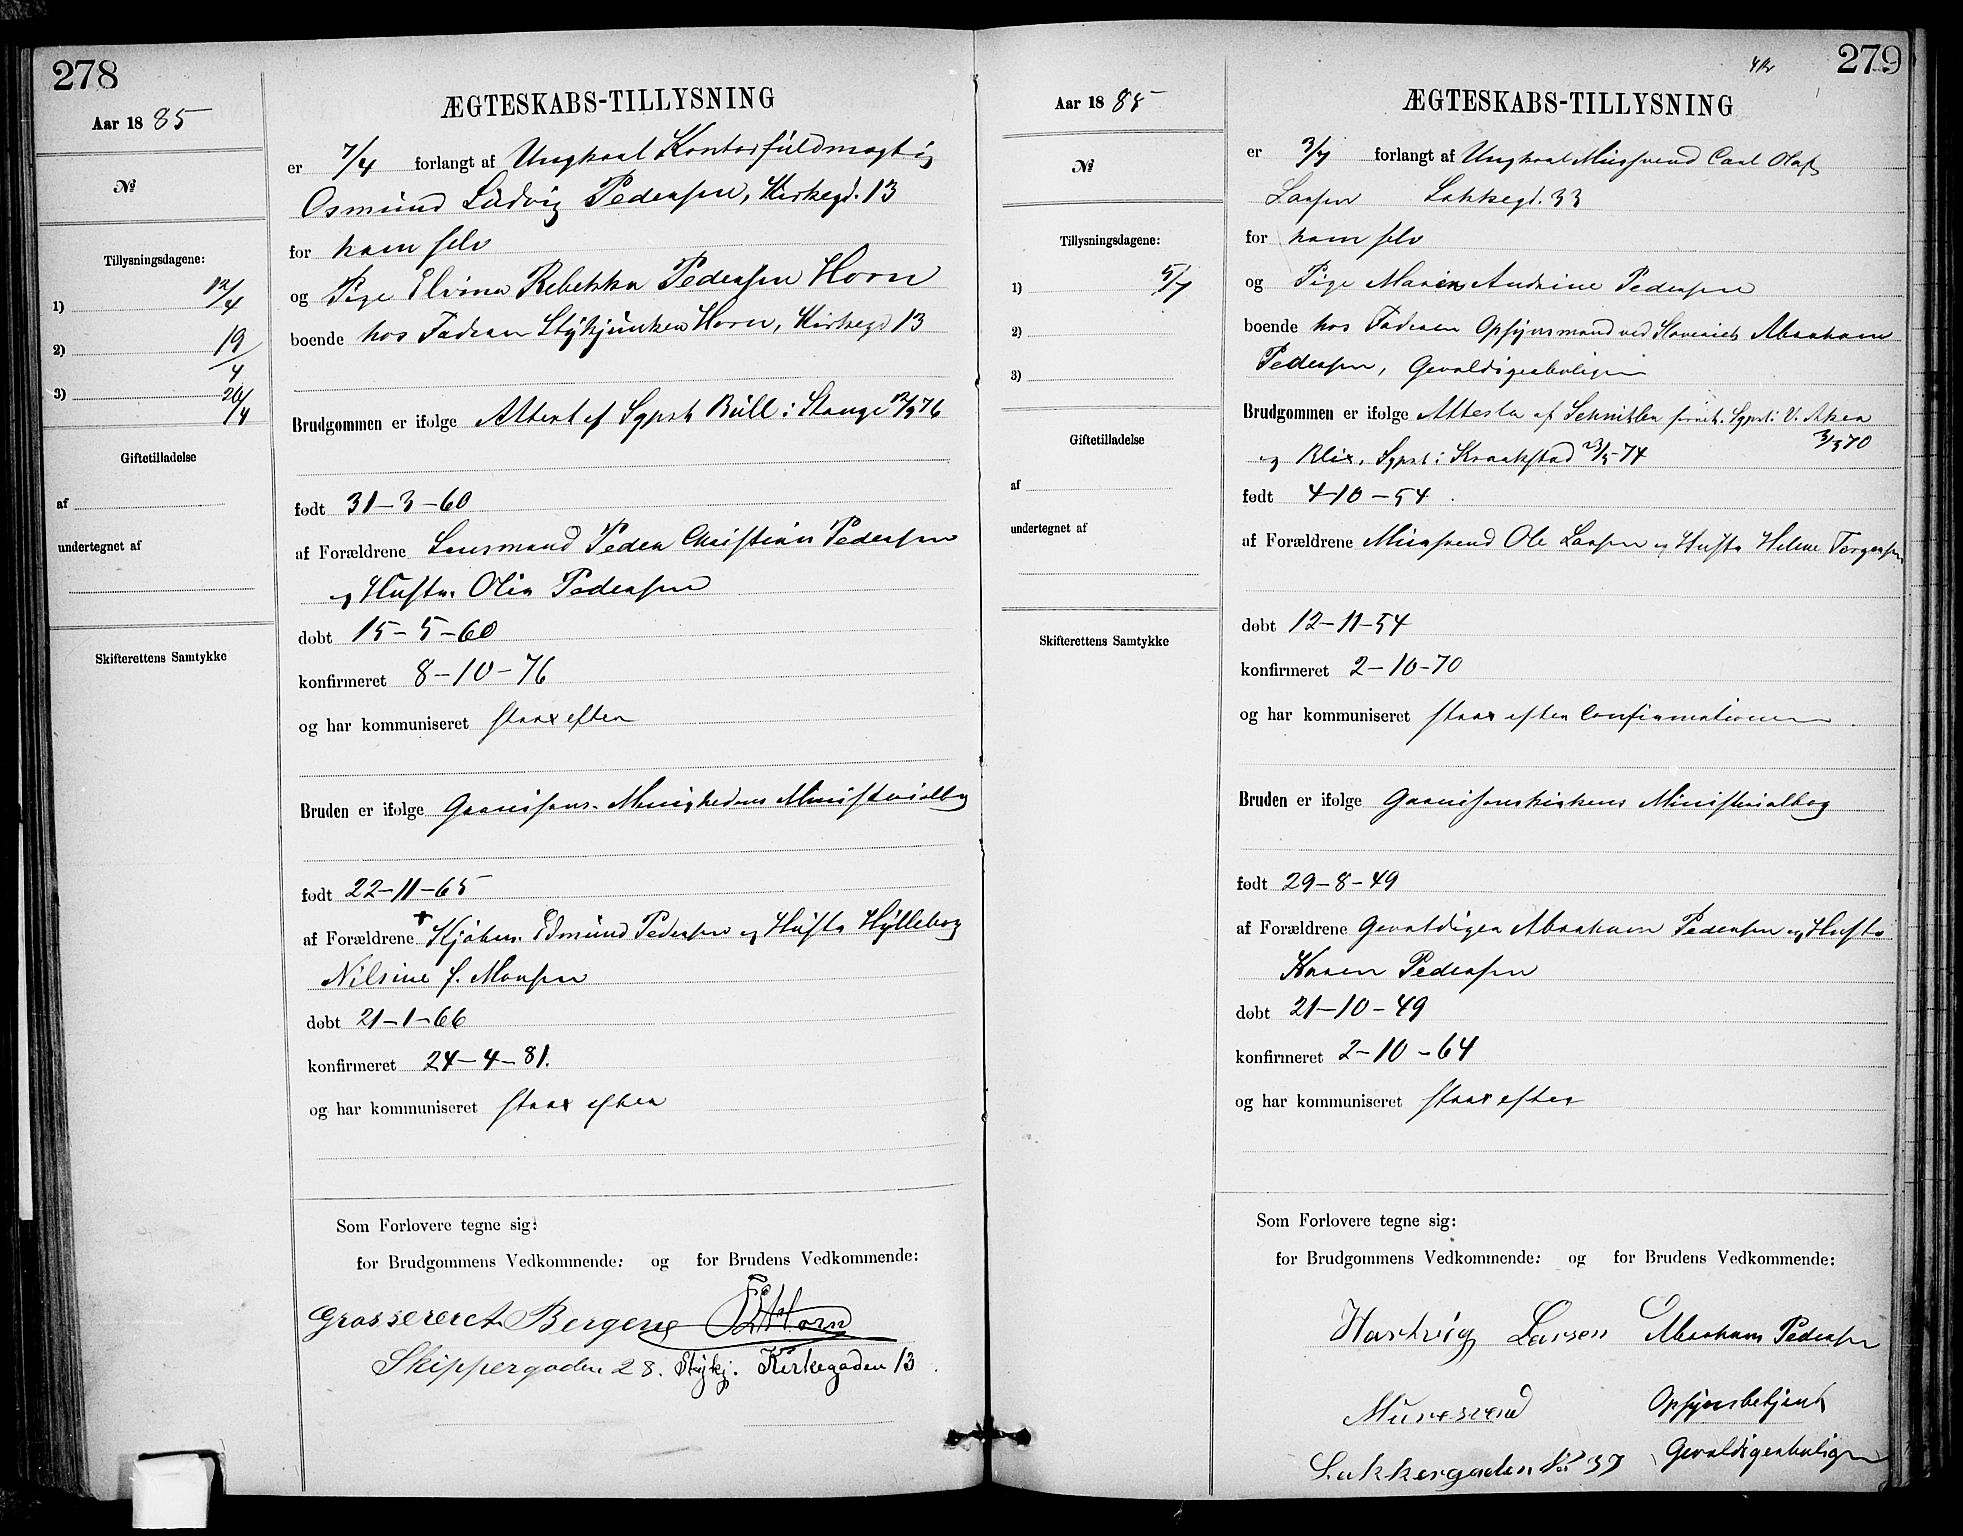 278
Aar 1885
№
Tillysningsdagene:
1) 12/4
2) 19/4
3) 26/4
Giftetilladelse
af
undertegnet af
Skifterettens Samtykke
ÆGTESKABS-TILLYSNING
er 7/4 forlangt af Ungkarl Kontorfuldmægtig
Osmund Ludvig Pedersen, Kirkegd. 13
for ham selv
og Pige Elvina Rebekka Pedersen Horn
boende hos Faderen Stykjunker Horn, Kirkegd 13
Brudgommen er ifølge Attest af Sgpst Bull i Stange 12/9 76
født 31-3-60
af Forældrene Lensmand Peder Christian Pedersen
og Hustru Olia Pedersen
døbt 15-5-60
konfirmeret 8-10-76
og har kommuniseret strax efter
Bruden er ifølge Garnisons-Menighedens Ministerialbog
født 22-11-65
af Forældrene Edmund Pedersen og Hustru Hylleborg
Nilsine f. Monsen
døbt 21-1-66
konfirmeret 24-4-81.
og har kommuniseret strax efter
Som Forlovere tegne sig:
for Brudgommens Vedkommende: og for Brudens Vedkommende:
Grosserer Bergene Horn
Skippergaden 28. Stykj. Kirkegaden 13
279
Aar 1885
№
Tillysningsdagene:
1) 5/7
2)
3)
Giftetilladelse
af
undertegnet af
Skifterettens Samtykke
ÆGTESKABS-TILLYSNING
er 3/7 forlangt af Ungkarl Mursvend Carl Olaf
Larsen Lakkegd. 33
for ham selv
og Pige Maren Andrine Pedersen
boende hos Faderen Opsynsmand ved Slaveriet Abraham
Pedersen, Gevaldigerboligen
Brudgommen er ifølge Attester af Schnitler Sgpst i V. Aker
3/3 70
og Blix, Sgpst i Kraakstad 23/5-74
født 4-10-54.
af Forældrene Mursvend Ole Larsen og Hustru Helene Torgersen
døbt 12-11-54
konfirmeret 2-10-70
og har kommuniseret strax efter Confirmationen
Bruden er ifølge Garnisonskirkens Ministerialbog
født 29-8-49
af Forældrene Gevaldiger Abraham Pedersen og Hustru
Karen Pedersen
døbt 21-10-49
konfirmeret 2-10-64
og har kommuniseret strax efter
Som Forlovere tegne sig:
for Brudgommens Vedkommende: og for Brudens Vedkommende:
Hartvig Larsen Abraham Pedersen
Muresvend Opsynsbetjent
Lakkergaden No 37 Gevaldigerboligen